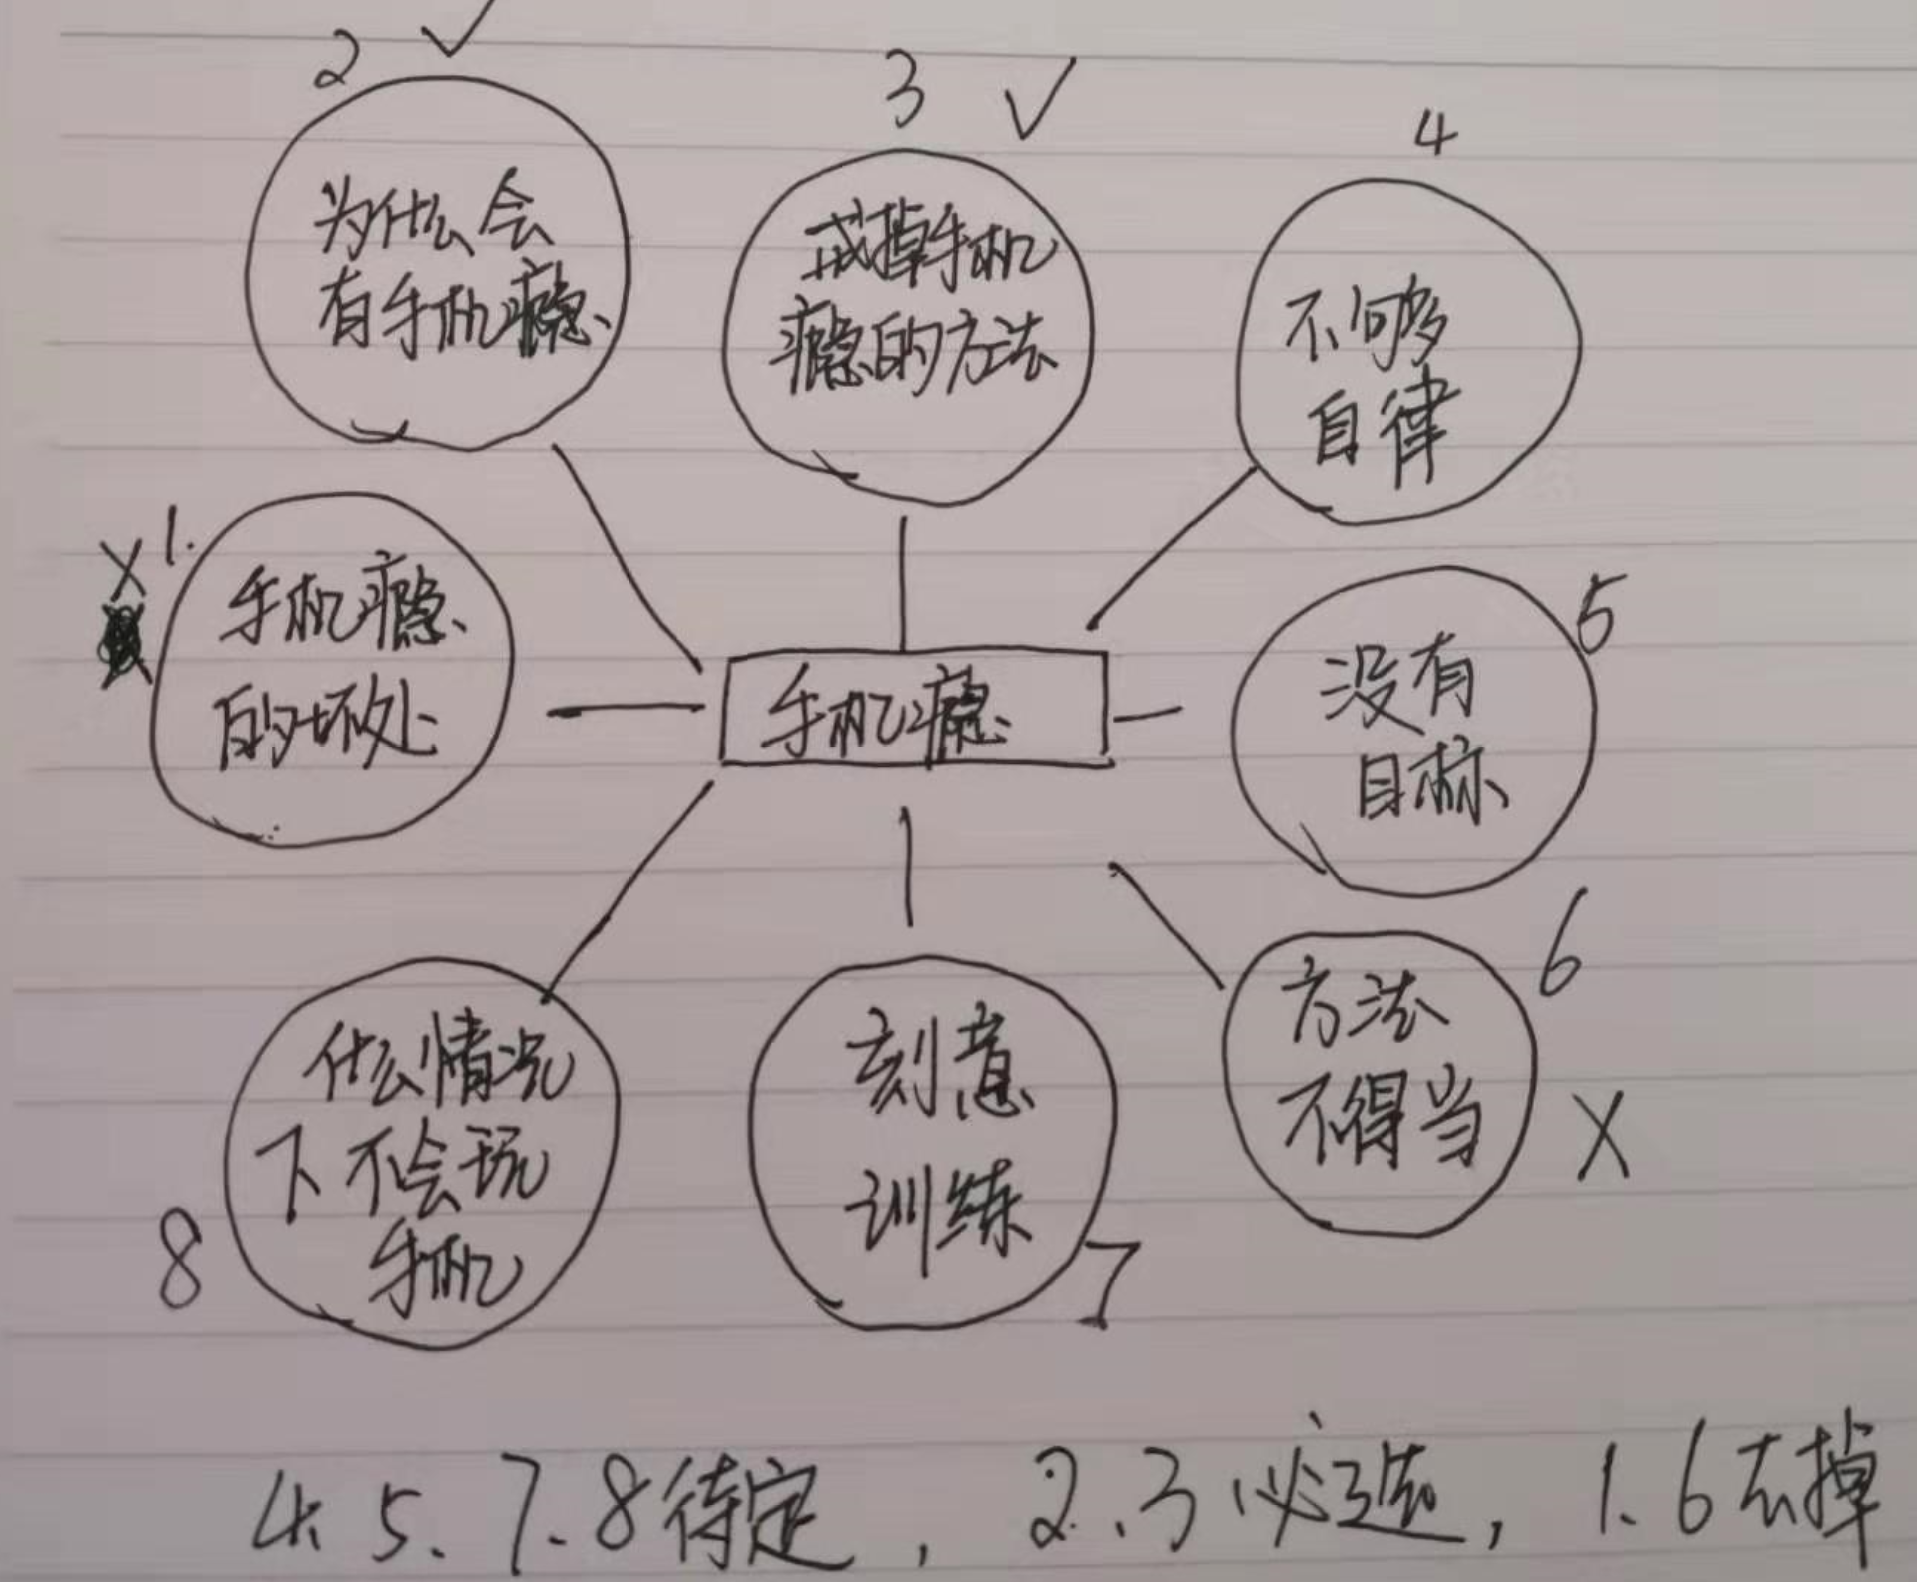 2 ✓
为什么会
有手机瘾
3 ✓
戒掉手机
瘾的方法
4
不够
自律
X 1.
手机瘾
的坏处
手机瘾
5
没有
目标
6
方法
不得当
X
8
什么情况
下不会玩
手机
刻意
训练
7
4. 5. 7. 8待定, 2.3必选, 1.6去掉